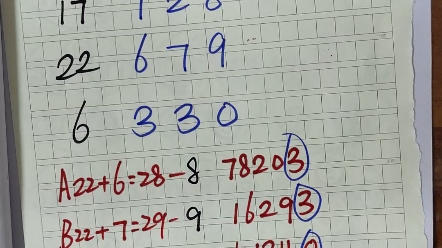 17 1 2 8
22 6 7 9
6 3 3 0
A22+6=28-8 78203
B22+7=29-9 16293